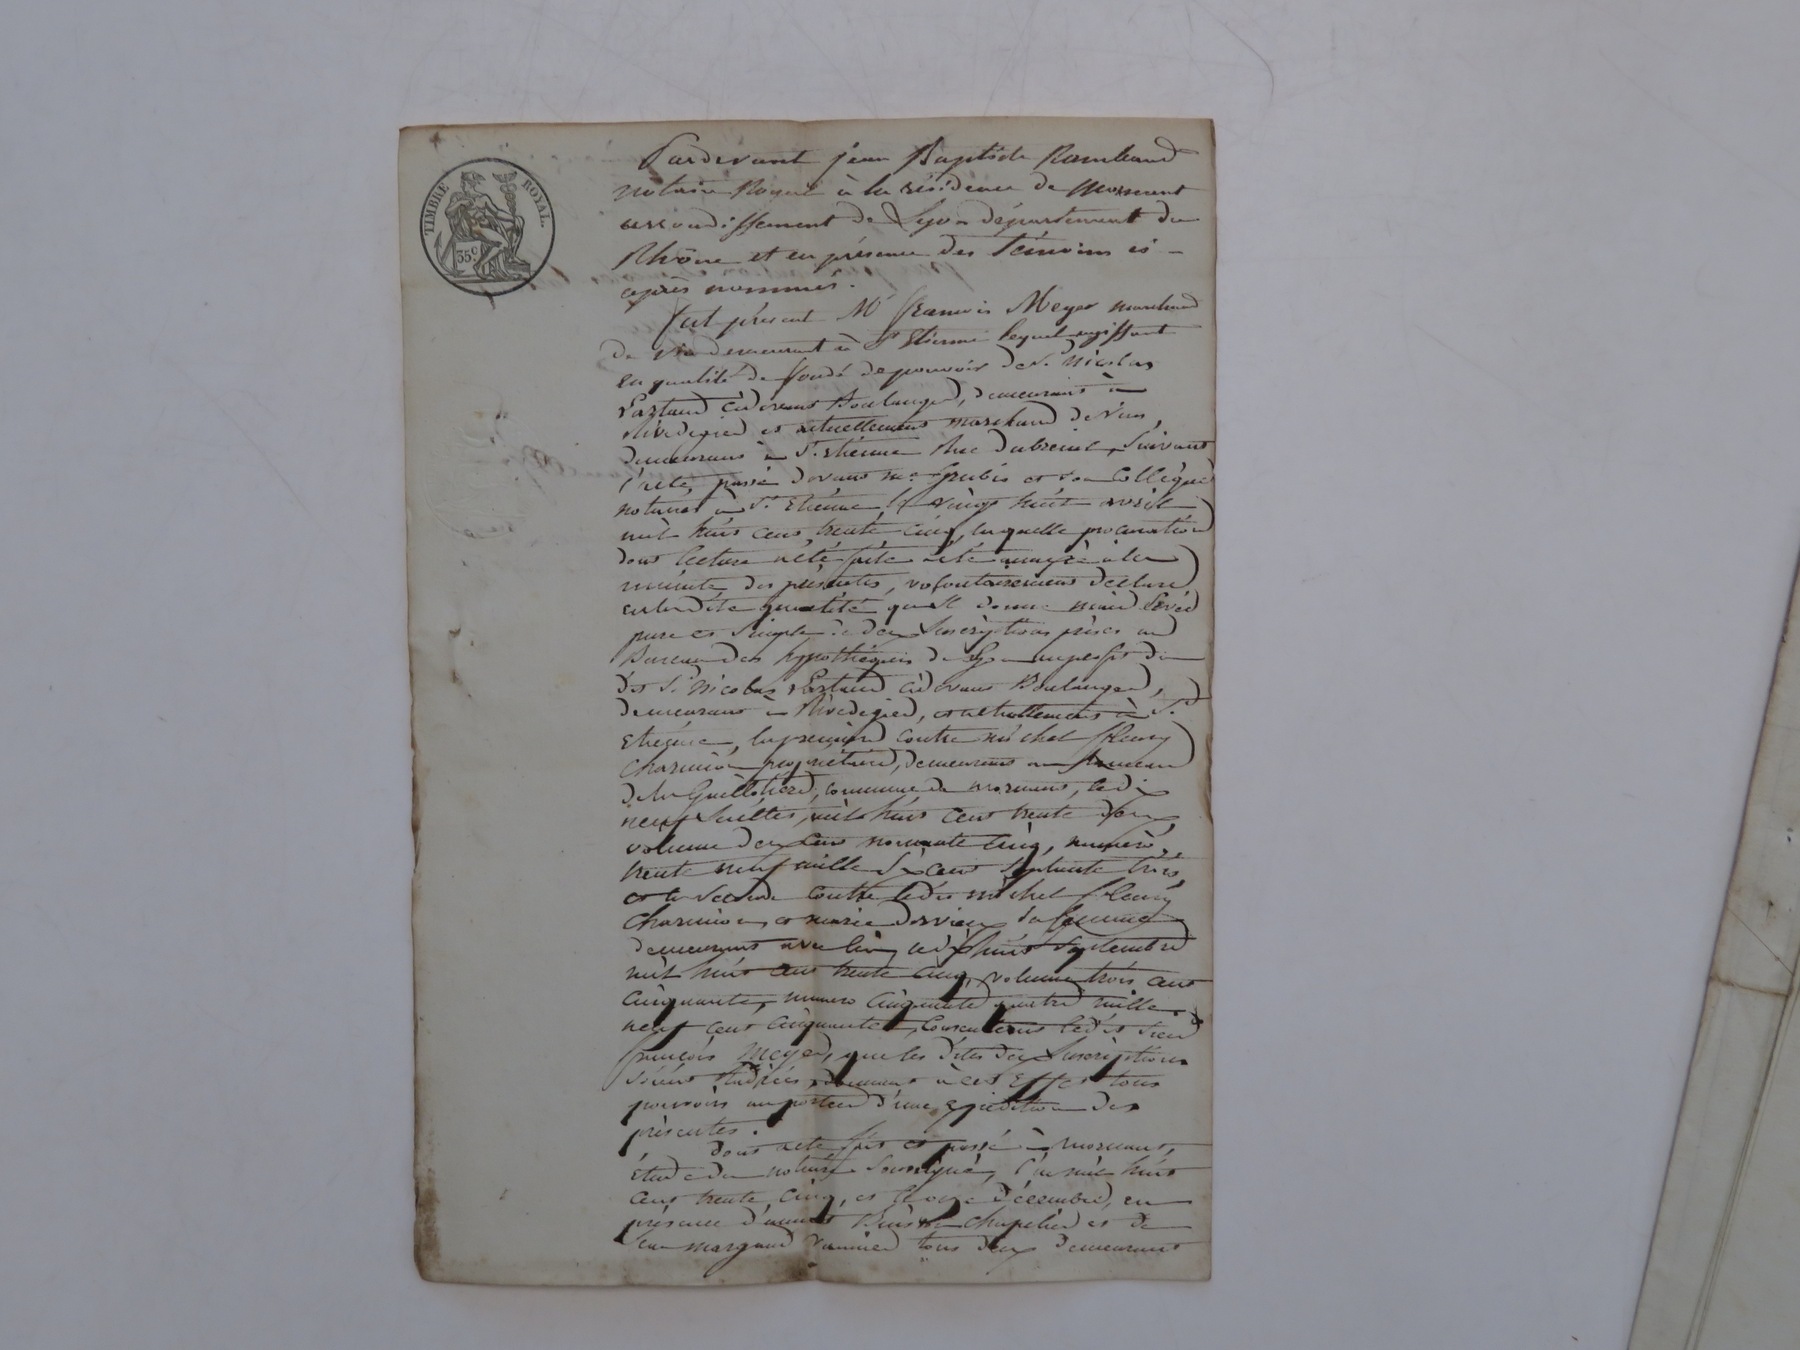 TIMBRE ROYAL
35c
Pardevant jean Baptiste Rambaud
notaire Royal à la résidence de Mornant
arrondissement de Lyon département du
Rhône et en présence des Témoins ci-
après nommés.
fut présent Mr francois Meyer marchand
de vin demeurant à St Etienne lequel agissant
en qualité de fondé de pouvoir de Sr. Nicolas
cidevant Boulanger, demeurant à
Rivedegier et actuellement marchand de vin,
demeurant à St. etienne Rue , Suivant
l'acte passé devant me. et son Collègue
notaires à St. Etienne le vingt huit avril
mil huit cent trente cinq, laquelle procuration
dont lecture a été faite a été annexée à la
minute des présentes, volontairement déclare
en la dite qualité qu'il donne main levée
pure et Simple de deux Inscriptions prises au
Bureau des hypothèques de Lyon au profit du
dit Sr. Nicolas cidevant Boulanger,
demeurant à Rivedegier, et actuellement à St.
Etienne, la première contre michel fleury
Charmion propriétaire, demeurant au hameau
de la Guillotière, commune de mornant, le dix
neuf juillet, mil huit cent trente deux,
volume deux cent nonante cinq, numéro,
trente neuf mille Six cent Septante trois,
et la Seconde contre ledit michel fleury
Charmion, et marie dervieux sa femme
demeurant avec lui, le dix huit Septembre
mil huit cent trente cinq, volume trois cent
cinquante, numéro cinquante quatre mille
neuf cent cinquante, Consentant ledit Sieur
françois Meyer, que les dites deux Inscriptions
soient Radiées, donnant à cet Effet tous
pouvoirs au porteur d'une expédition des
présentes.
dont acte fait et passé à mornant,
étude du notaire Soussigné, l'an mil huit
cent trente cinq, et le onze décembre, en
présence d' chapelier et de
jean vannier tous deux demeurant